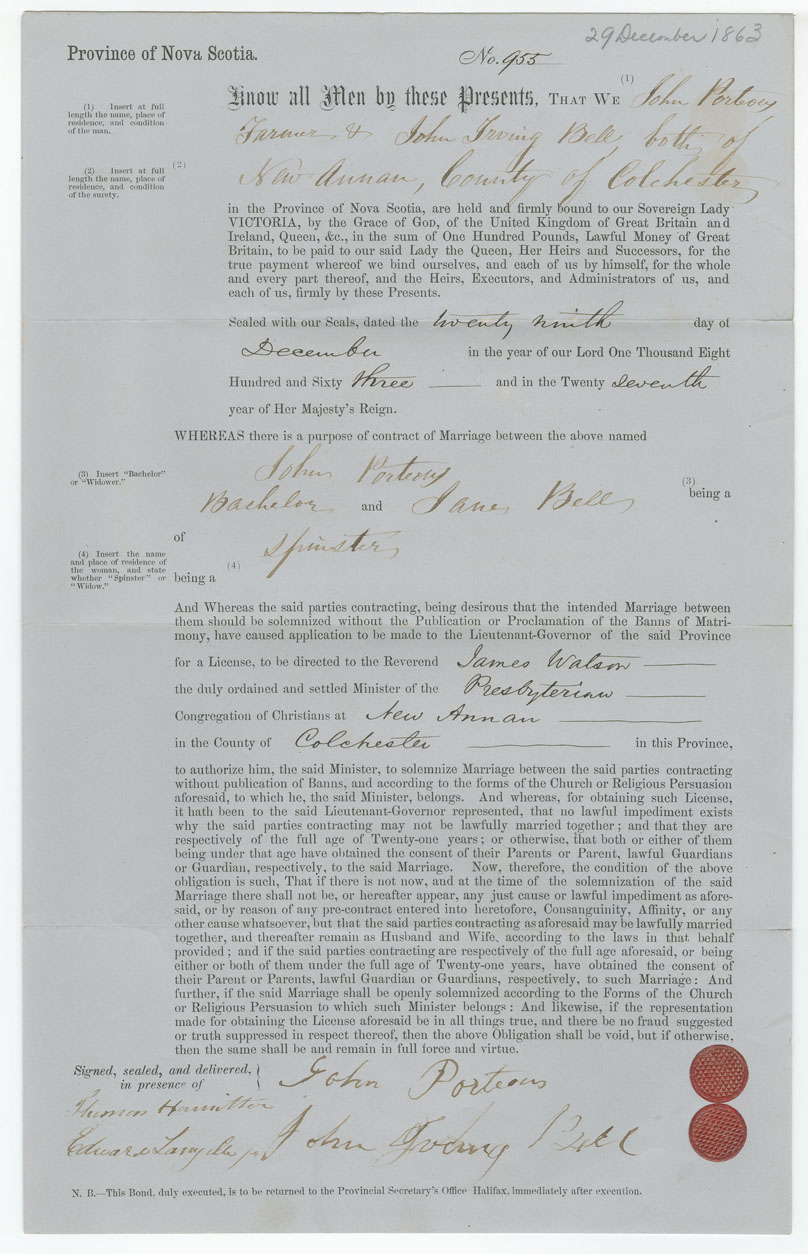 29 December 1863
Province of Nova Scotia.
No. 955
(1)
Know all Men by these Presents, THAT WE John Porteous,
(1) Insert at full
length the name, place of
residence, and condition
of the man.
Farmer & John Irving Bell, both of
(2) Insert at full
length the name, place of
residence, and condition
of the surety.
(2)
New Annan, County of Colchester
in the Province of Nova Scotia, are held and firmly bound to our Sovereign Lady
VICTORIA, by the Grace of GOD, of the United Kingdom of Great Britain and
Ireland, Queen, &c., in the sum of One Hundred Pounds, Lawful Money of Great
Britain, to be paid to our said Lady the Queen, Her Heirs and Successors, for the
true payment whereof we bind ourselves, and each of us by himself, for the whole
and every part thereof, and the Heirs, Executors, and Administrators of us, and
each of us, firmly by these Presents.
Sealed with our Seals, dated the twenty ninth day of
December in the year of our Lord One Thousand Eight
Hundred and Sixty three and in the Twenty seventh
year of Her Majesty's Reign.
WHEREAS there is a purpose of contract of Marriage between the above named
John Porteous
(3) Insert "Bachelor"
or "Widower."
(3)
being a
Bachelor and Jane Bell
of
Spinster
(4) Insert the name
and place of residence of
the woman, and state
whether "Spinster" or
"Widow."
(4)
being a
And Whereas the said parties contracting, being desirous that the intended Marriage between
them should be solemnized without the Publication or Proclamation of the Banns of Matri-
mony, have caused application to be made to the Lieutenant-Governor of the said Province
for a License, to be directed to the Reverend James Watson
the duly ordained and settled Minister of the Presbyterian
Congregation of Christians at New Annan
in the County of Colchester in this Province,
to authorize him, the said Minister, to solemnize Marriage between the said parties contracting
without publication of Banns, and according to the forms of the Church or Religious Persuasion
aforesaid, to which he, the said Minister, belongs. And whereas, for obtaining such License,
it hath been to the said Lieutenant-Governor represented, that no lawful impediment exists
why the said parties contracting may not be lawfully married together; and that they are
respectively of the full age of Twenty-one years; or otherwise, that both or either of them
being under that age have obtained the consent of their Parents or Parent, lawful Guardians
or Guardian, respectively, to the said Marriage. Now, therefore, the condition of the above
obligation is such, That if there is not now, and at the time of the solemnization of the said
Marriage there shall not be, or hereafter appear, any just cause or lawful impediment as afore-
said, or by reason of any pre-contract entered into heretofore, Consanguinity, Affinity, or any
other cause whatsoever, but that the said parties contracting as aforesaid may be lawfully married
together, and thereafter remain as Husband and Wife, according to the laws in that behalf
provided; and if the said parties contracting are respectively of the full age aforesaid, or being
either or both of them under the full age of Twenty-one years, have obtained the consent of
their Parent or Parents, lawful Guardian or Guardians, respectively, to such Marriage: And
further, if the said Marriage shall be openly solemnized according to the Forms of the Church
or Religious Persuasion to which such Minister belongs: And likewise, if the representation
made for obtaining the License aforesaid be in all things true, and there be no fraud suggested
or truth suppressed in respect thereof, then the above Obligation shall be void, but if otherwise,
then the same shall be and remain in full force and virtue.
Signed, sealed, and delivered,
in presence of
John Porteous
Thomas Hamilton
Edward Langille John Irving Bell
N. B.—This Bond, duly executed, is to be returned to the Provincial Secretary's Office Halifax, immediately after execution.